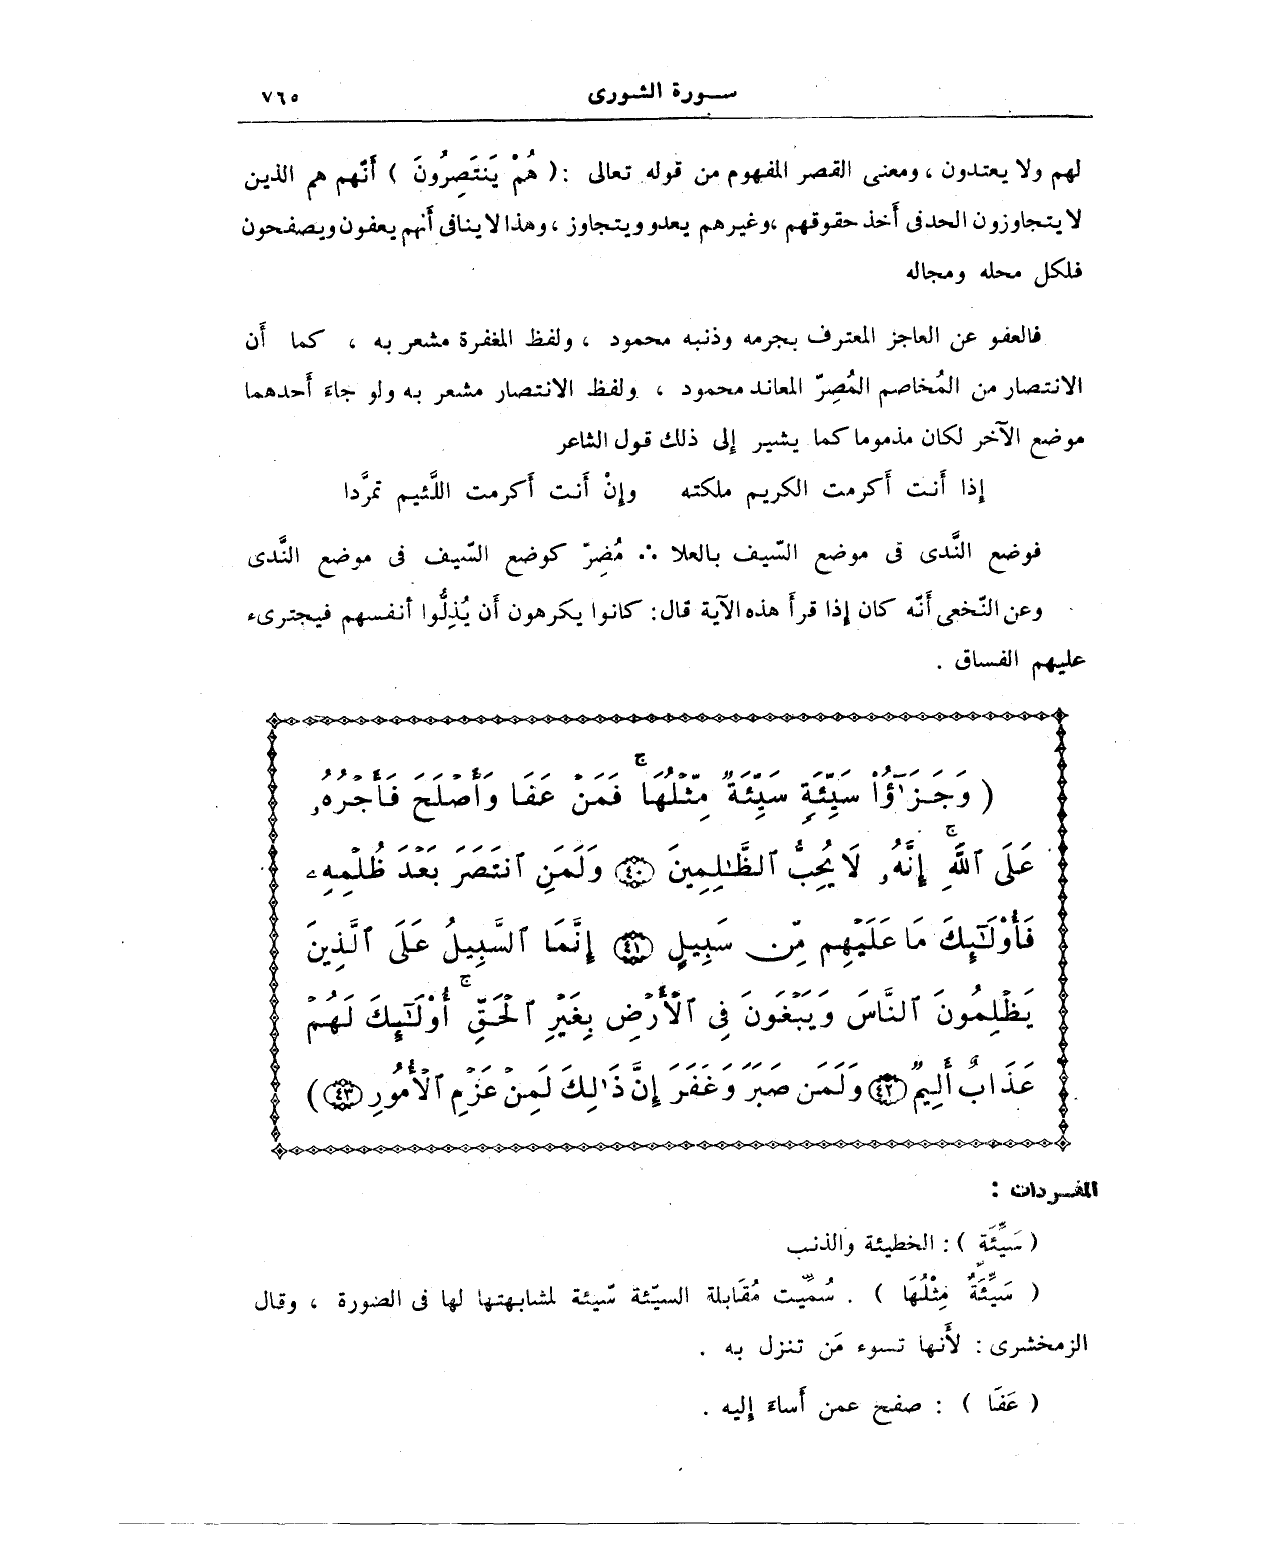 سورة الشورى ٧٦٥
لهم ولا يعتدون ، ومعنى القصر المفهوم من قوله تعالى :( هُمْ يَنتَصِرُونَ ) أَنّهم هم الذين
لا يتجاوزون الحد فى أَخذ حقوقهم ،وغيرهم يعدو ويتجاوز ، وهذا لا ينافى أَنهم يعفون ويصفحون
فلكل محله ومجاله
فالعفو عن العاجز المعترف بجرمه وذنبه محمود ، ولفظ المغفرة مشعر به ، كما أَن
الانتصار من المُخاصم المُصِرّ المعاند محمود ، ولفظ الانتصار مشعر به ولو جاءَ أَحدهما
موضع الآخر لكان مذموما كما يشير إلى ذلك قول الشاعر
إذا أَنت أَكرمت الكريم ملكته وإنْ أَنت أَكرمت اللَّئيم تمرَّدا
فوضع النَّدى فى موضع السّيف بالعلا ∴ مُضِرّ كوضع السّيف فى موضع النَّدى
وعن النّخعى أَنّه كان إذا قرأَ هذه الآية قال: كانوا يكرهون أَن يُذِلُّوا أنفسهم فيجترىء
عليهم الفساق .
( وَجَزَٰٓؤُاْ سَيِّئَةٍ سَيِّئَةٌ مِّثْلُهَا ۖ فَمَنْ عَفَا وَأَصْلَحَ فَأَجْرُهُۥ
عَلَى ٱللَّهِ ۚ إِنَّهُۥ لَا يُحِبُّ ٱلظَّٰلِمِينَ ﴿٤٠﴾ وَلَمَنِ ٱنتَصَرَ بَعْدَ ظُلْمِهِۦ
فَأُوْلَٰٓئِكَ مَا عَلَيْهِم مِّن سَبِيلٍ ﴿٤١﴾ إِنَّمَا ٱلسَّبِيلُ عَلَى ٱلَّذِينَ
يَظْلِمُونَ ٱلنَّاسَ وَيَبْغُونَ فِى ٱلْأَرْضِ بِغَيْرِ ٱلْحَقِّ ۚ أُوْلَٰٓئِكَ لَهُمْ
عَذَابٌ أَلِيمٌ ﴿٤٢﴾ وَلَمَن صَبَرَ وَغَفَرَ إِنَّ ذَٰلِكَ لَمِنْ عَزْمِ ٱلْأُمُورِ ﴿٤٣﴾ )
المفردات :
( سَيِّئَةٍ ) : الخطيئة والذنب
( سَيِّئَةٌ مِثْلُهَا ) . سُمِّيت مُقَابلة السيّئة سّيئة لمشابهتها لها فى الصورة ، وقال
الزمخشرى : لأَنها تسوء مَن تنزل به .
( عَفَا ) : صفح عمن أَساءَ إليه .